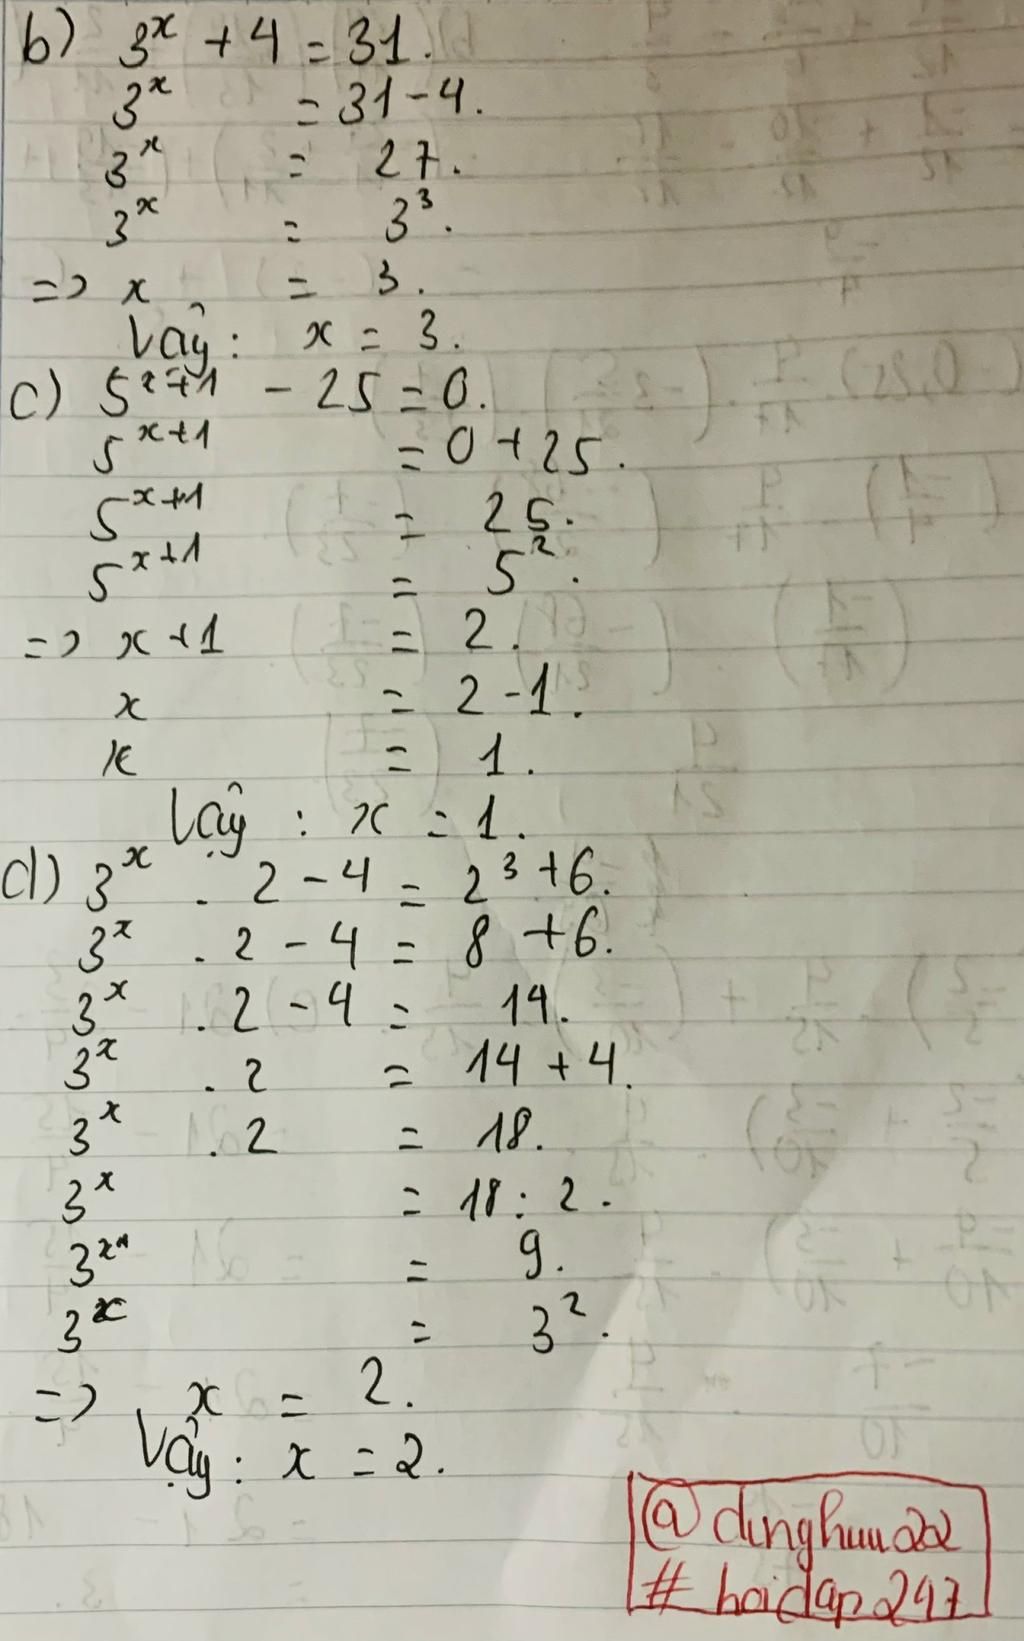 b) 3^x + 4 = 31.
3^x = 31 - 4.
3^x = 27.
3^x = 3^3.
=> x = 3.
Vậy : x = 3.
c) 5^x+1 - 25 = 0.
5^x+1 = 0 + 25.
5^x+1 = 25.
5^x+1 = 5^2.
=> x + 1 = 2.
x = 2 - 1.
x = 1.
Vậy : x = 1.
d) 3^x . 2 - 4 = 2^3 + 6.
3^x . 2 - 4 = 8 + 6.
3^x . 2 - 4 = 14.
3^x . 2 = 14 + 4.
3^x . 2 = 18.
3^x = 18 : 2.
3^x = 9.
3^x = 3^2.
=> x = 2.
Vậy : x = 2.
# hoidap247